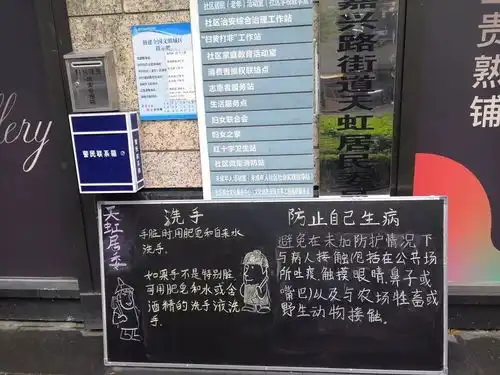 社区治安综合治理工作站
"扫黄打非"工作站
社区家庭教育活动室
消费者维权联络点
志愿者服务站
生活服务点
妇女联合会
妇女之家
红十字卫生站
社区微型消防站
嘉兴路街道天虹居民委
警民联系箱
llery
贵
熟
铺
天虹居委
洗手
手脏时用肥皂和自来水
洗手。
如果手不是特别脏
可用肥皂和水或含
酒精的洗手液洗
手.
防止自己生病
避免在未加防护情况下
与病人接触(包括在公共场
所吐痰,触摸眼睛,鼻子或
嘴巴)以及与农场牲畜或
野生动物接触.